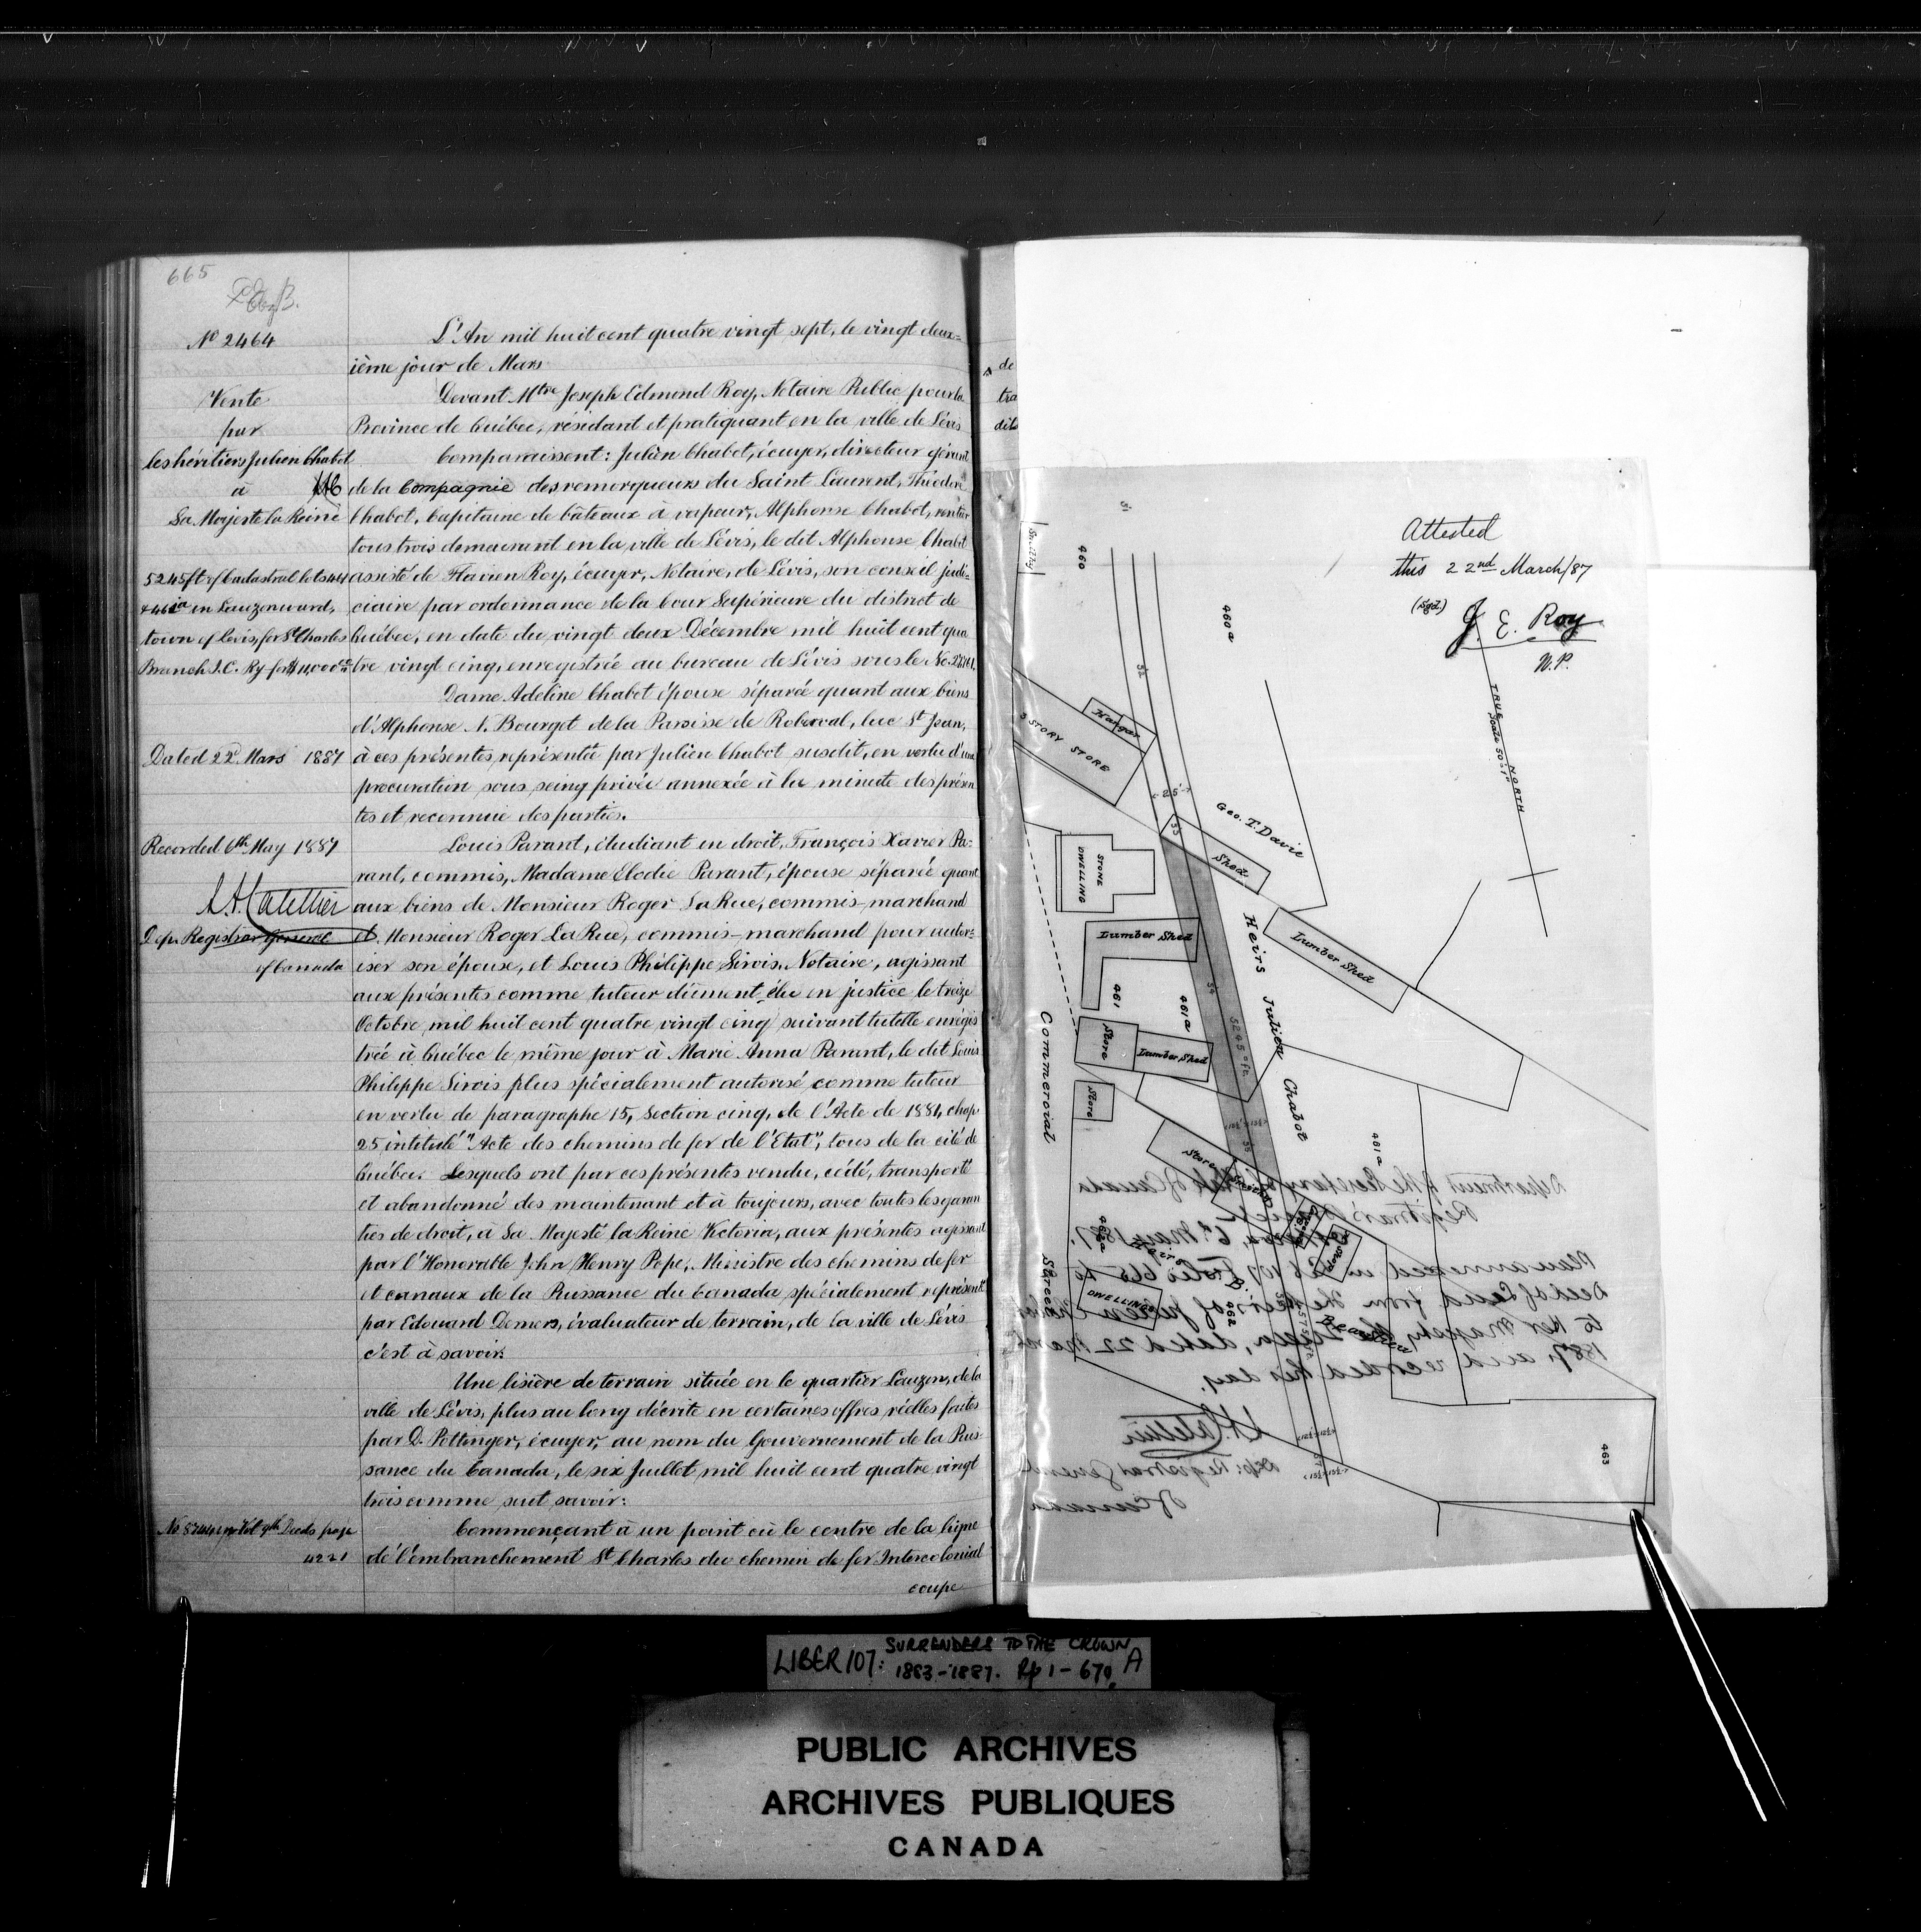 665
No 2464
Vente
par
les héritiers Julien Chabot
à
Sa Majesté la Reine
5245 ft of Cadastral lots 44
& 461a in Lauzon ward,
town of Levis, for St Charles
Branch I.C. Ry for
Dated 22d Mars 1887
Recorded 6th May 1887
L.A. Catellier
Dep. Registrar General
of Canada
page
4221
L'An mil huit cent quatre vingt sept, le vingt deux-
ième jour de Mars
Devant Mtre Joseph Edmond Roy, Notaire Public pour la
Province de Québec, résidant et pratiquant en la ville de Lévis
Comparaissent: Julien Chabot, écuyer, directeur gérant
de la Compagnie des remorqueurs du Saint Laurent, Théodore
Chabot, Capitaine de bâteaux à vapeur, Alphonse Chabot, rentier
tous trois demeurant en la ville de Lévis, le dit Alphonse Chabot
assisté de Flavien Roy, écuyer, Notaire, de Lévis, son conseil judi-
ciaire par ordonnance de la Cour Supérieure du district de
Québec, en date du vingt deux Décembre mil huit cent qua
tre vingt cinq, enregistrée au bureau de Lévis sous le No
Dame Adeline Chabot épouse séparée quant aux biens
d'Alphonse N. Bourget de la Paroisse de Roberval, luc St Jean,
à ces présentes représentée par Julien Chabot susdit, en vertu d'une
procuration sous seing privée annexée à la minute des présen
tes et reconnue des parties.
Louis Parant, étudiant en droit, François Xavier Pa-
rant, commis, Madame Elodie Parant, épouse séparée quant
aux biens de Monsieur Roger LaRue, commis-marchand
et Monsieur Roger LaRue, commis-marchand pour autor-
iser son épouse, et Louis Philippe Sirois, Notaire, agissant
aux présentes comme tuteur dûment élu en justice le treize
Octobre mil huit cent quatre vingt cinq suivant tutelle enrégis
trée à Québec le même jour à Marie Anna Parant, le dit Louis
Philippe Sirois plus spécialement autorisé comme tuteur
en vertu de paragraphe 15, Section cinq, de l'Acte de 1881, chap
25 intitulé "Acte des chemins de fer de l'Etat", tous de la cité de
Québec. Lesquels ont par ces présentes vendu, cédé, transporté
et abandonné des maintenant et à toujours, avec toutes les garan
ties de droit, à Sa Majesté la Reine Victoria, aux présentes agissant
par l'Honorable John Henry Pope, Ministre des chemins de fer
et canaux de la Puissance du Canada spécialement représenté
par Edouard Demers, évaluateur de terrain, de la ville de Lévis
c'est à savoir:
Une lisière de terrain située en le quartier Lauzon, de la
ville de Lévis, plus au long décrite en certaines offres réelles faites
par D. Pottinger, écuyer, au nom du Gouvernement de la Puis-
sance du Canada, le six Juillet mil huit cent quatre vingt
trois comme suit savoir:
Commençant à un point où le centre de la ligne
de l'embranchement St Charles du chemin de fer Intercolonial
coupe
de
tra
dit
Attested
this 22nd March/87
(Sgd) J. E. Roy
N.P.
TRUE NORTH
Scale 50'=1"
460
460a
Hangar
3 STORY STORE
25'
Geo. T. Davie
STONE
DWELLING
Shed
Lumber Shed
Lumber Shed
Heirs Julien Chabot
461
461a
5245 ft.
Store
Lumber Shed
Store
Commercial Street
Store
461a
462a
462
DWELLING
463
Department of the Secretary of State of Canada
Registrar's Branch
Ottawa, 6th May 1887.
Plan annexed in Lib 107 Folio 665 to
Deed of Land from the Heirs of Julien Chabot
to Her Majesty the Queen, dated 22 March
1887, and recorded this day.
L.A. Catellier
Dep. Registrar General
of Canada
LIBER 107: SURRENDERS TO THE CROWN
1883-1887. Pp 1-670, A
PUBLIC ARCHIVES
ARCHIVES PUBLIQUES
CANADA